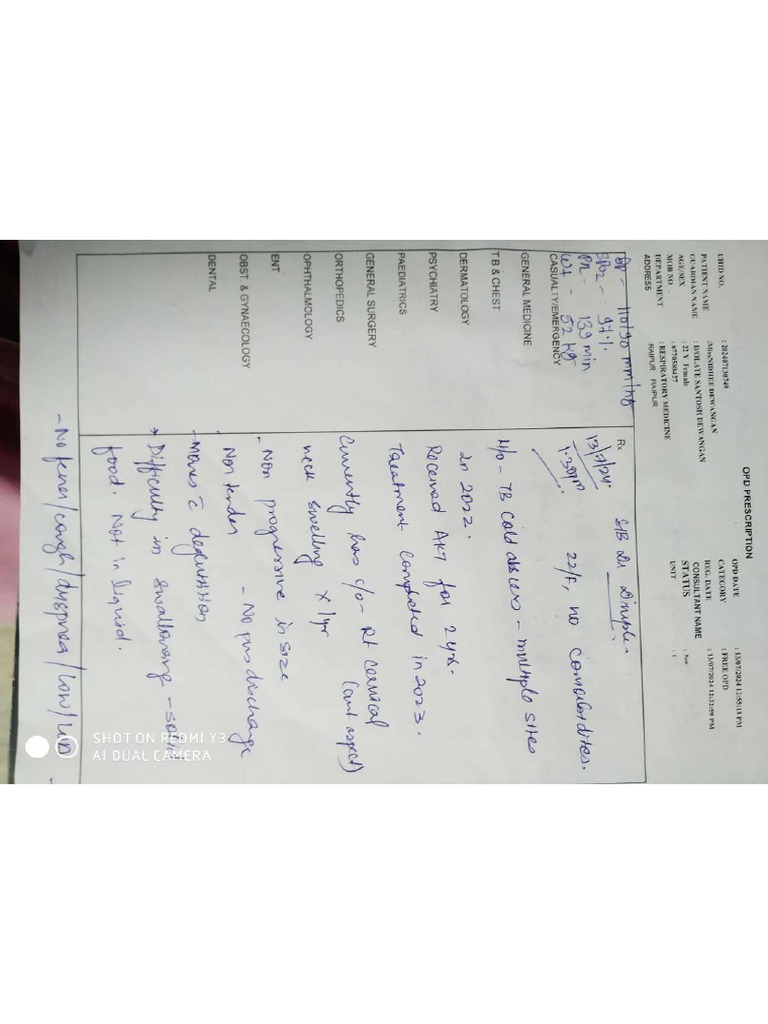 OPD PRESCRIPTION
UHID NO. : 202407130749
PATIENT NAME : Miss NIDHEE DEWANGAN
GUARDIAN NAME : D/O LATE SANTOSH DEWANGAN
AGE/SEX : 22 Y Female
MOB NO : 8770580427
DEPARTMENT : RESPIRATORY MEDICINE
ADDRESS RAIPUR RAIPUR
OPD DATE : 13/07/2024 12:55:13 PM
CATEGORY : FREE OPD
REG. DATE : 13/07/2024 12:32:59 PM
CONSULTANT NAME
STATUS : New
UNIT : 1
BP - 110/90 mmHg
SPO2 - 97%
PR - 139 min
Wt - 52 kg
CASUALTY/EMERGENCY
GENERAL MEDICINE
T.B & CHEST
DERMATOLOGY
PSYCHIATRY
PAEDIATRICS
GENERAL SURGERY
ORTHOPEDICS
OPHTHALMOLOGY
ENT
OBST. & GYNAECOLOGY
DENTAL
Rx
S/B Dr Dimple
13/7/24
1:30pm
22/F, no comorbidites.
H/O - TB cold abscess - multiple sites
in 2022.
Received AKT for 2 yrs.
Treatment completed in 2023.
Currently has c/o - Rt cervical
(ant aspect)
neck swelling x 1yr
- Non progressive in size
Non tender - No pus discharge
- Moves c deglutition
* Difficulty in swallowing - solid
food. Not in liquid.
- No fever/cough/dyspnea/LOW/
SHOT ON REDMI Y3
AI DUAL CAMERA